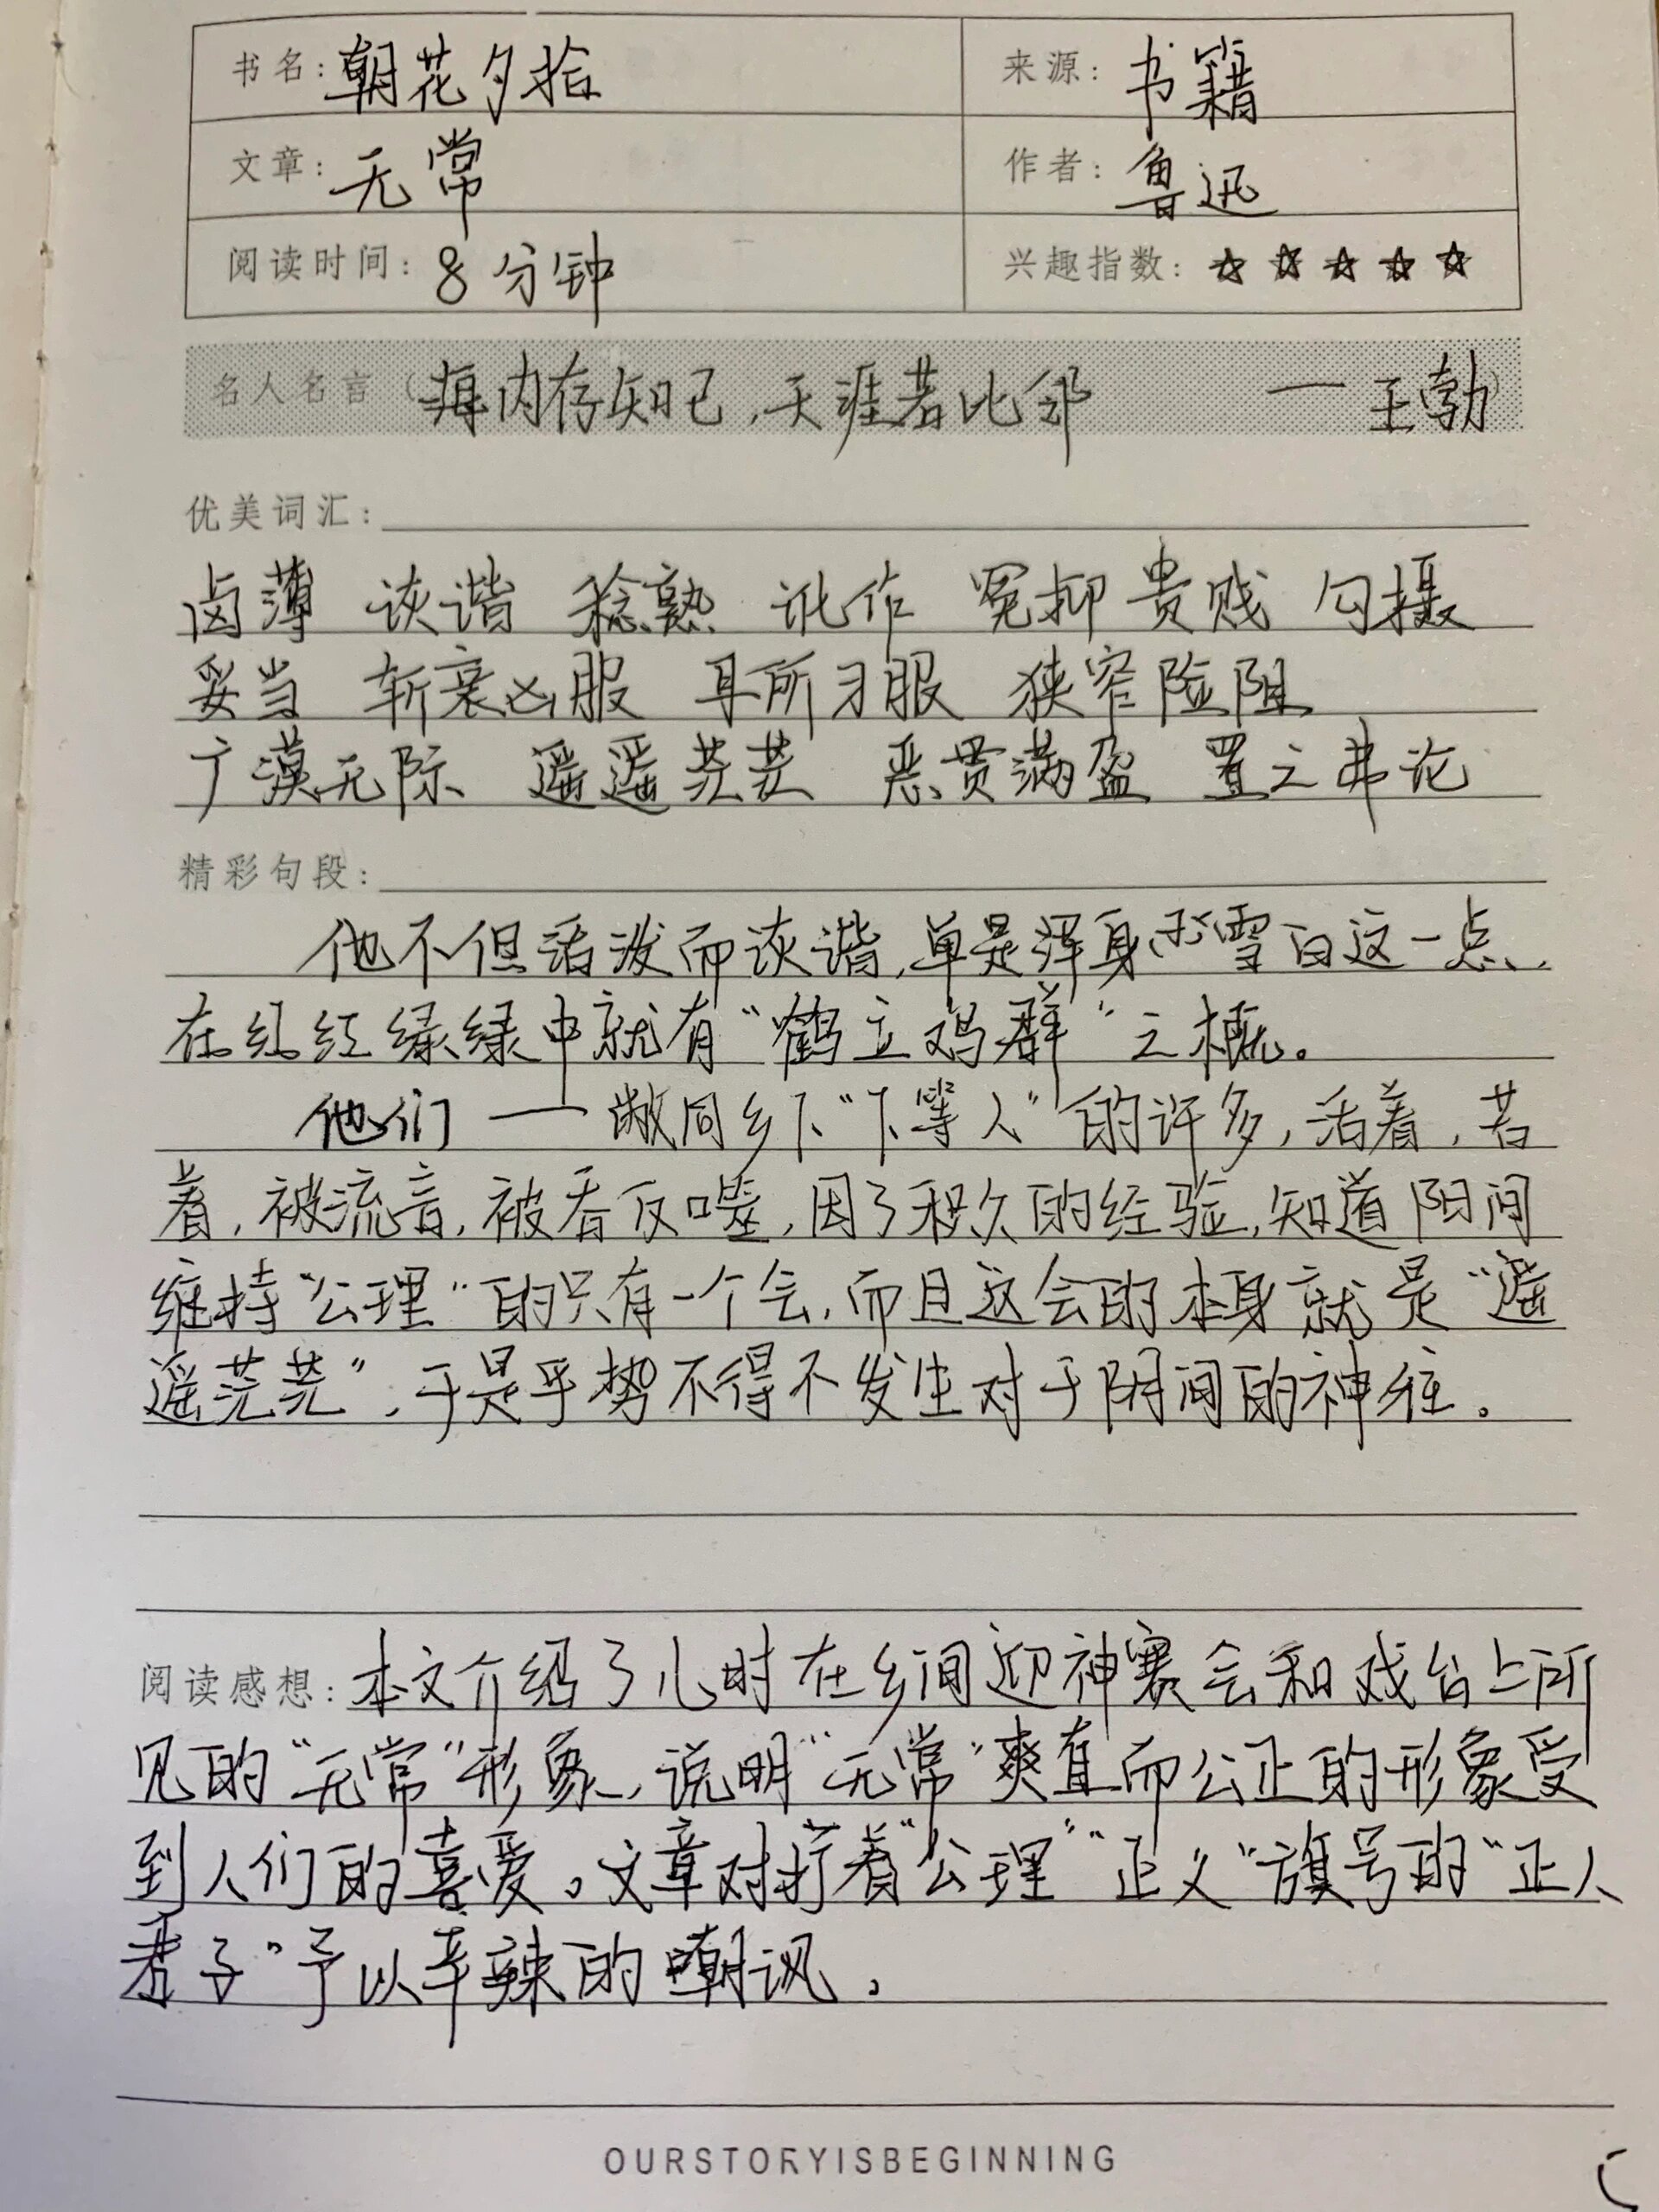 书名: 朝花夕拾 来源: 书籍
文章: 无常 作者: 鲁迅
阅读时间: 8分钟 兴趣指数: ☆☆☆☆☆
名人名言（海内存知己,天涯若比邻 —王勃）
优美词汇:
卤薄 诙谐 稔熟 讹作 冤抑 贵贱 勾摄
妥当 斩衰凶服 耳所习服 狭窄险阻
广漠无际 遥遥茫茫 恶贯满盈 置之弗论
精彩句段:
他不但活泼而诙谐,单是浑身雪白这一点,
在红红绿绿中就有“鹤立鸡群”之概。
他们——敝同乡下“下等人”的许多,活着,苦
着,被流言,被看反噬,因了积久的经验,知道阳间
维持“公理”的只有一个会,而且这会的本身就是“遥
遥茫茫”,于是乎势不得不发生对于阴间的神往。
阅读感想: 本文介绍了儿时在乡间迎神赛会和戏台上所
见的“无常”形象,说明“无常”爽直而公正的形象受
到人们的喜爱。文章对打着“公理”“正义”旗号的“正人
君子”予以辛辣的嘲讽。
OURSTORYISBEGINNING